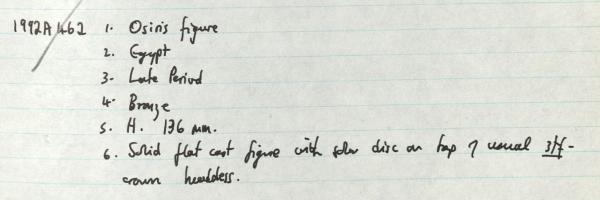 1992A462 1. Osiris figure
2. Egypt
3. Late Period
4. Bronze
5. H. 136 mm.
6. Solid flat cast figure with solar disc on top of usual
crown headdess.